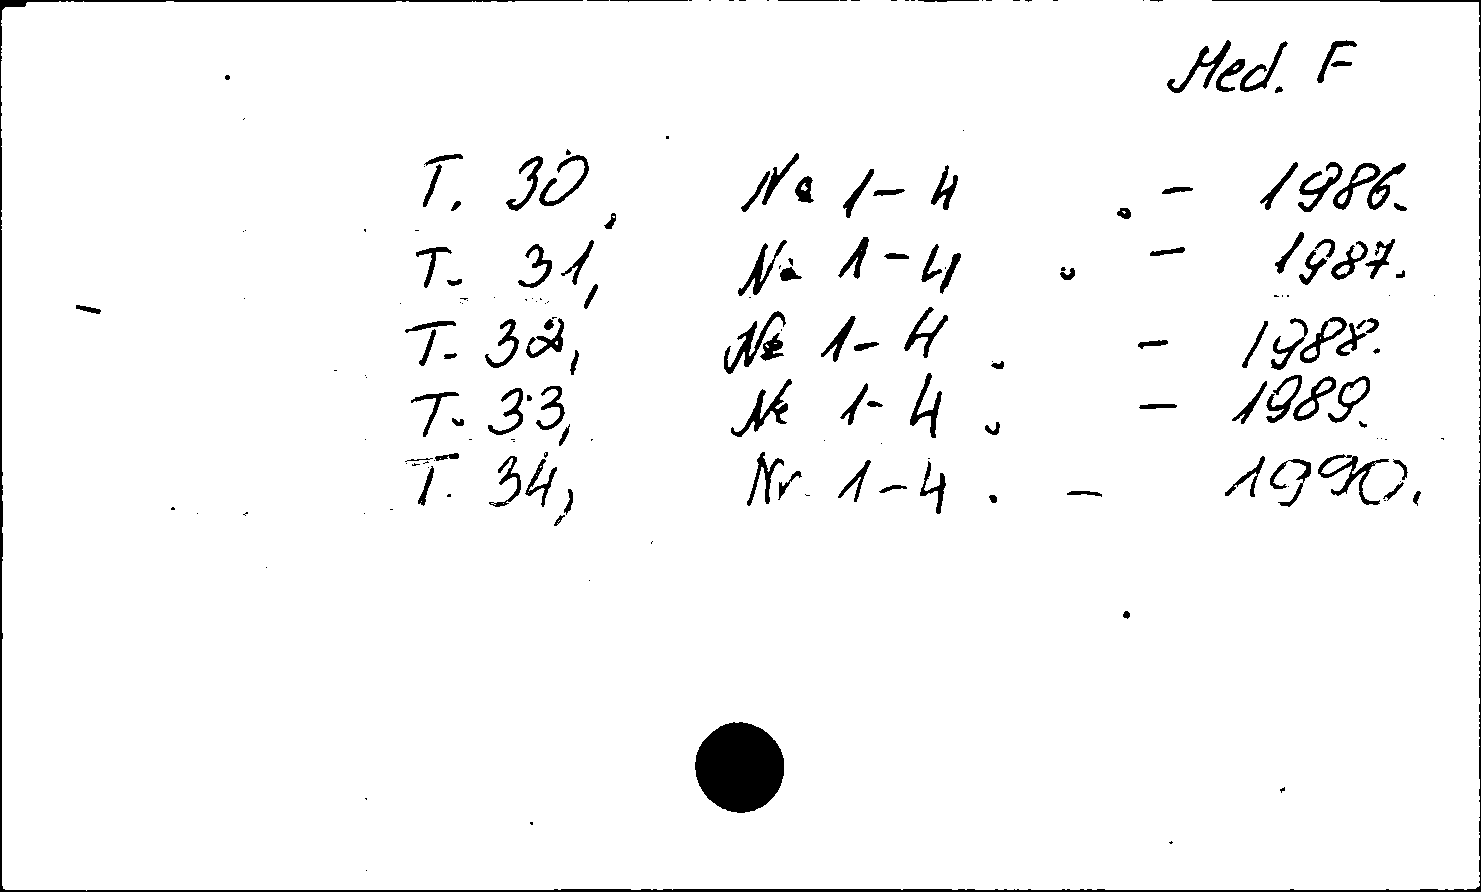 Med. F
T. 30, № 1-4. - 1986.
T. 31, № 1-4. - 1987.
T. 32, № 1-4. - 1988.
T. 33, № 1-4. - 1989.
T. 34, Nr. 1-4. - 1990.